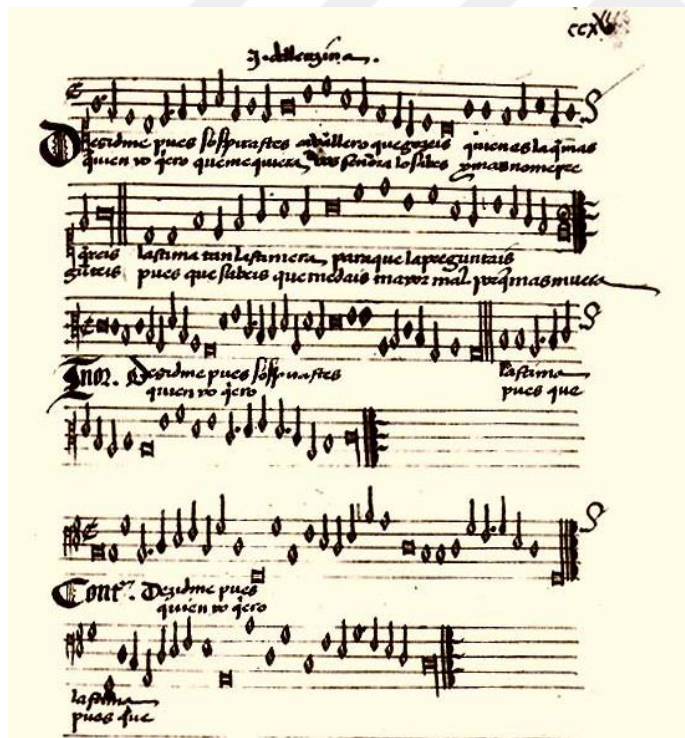 ccxv
J. del enzina.
Dezidme pues sospirastes cavallero que gozeis quien es la q̃ mas
quien yo q̃ero que me quiera vos señora lo sabes y mas no me pre
q̃reis lastima tan lastimera para que la preguntais
gũteis pues que sabeis que me dais mayor mal porq̃ mas muera
Tenor. Dezidme pues sospirastes lastima
quien yo q̃ero pues que
Contra. Dezidme pues
quien yo q̃ero
lastima
pues que